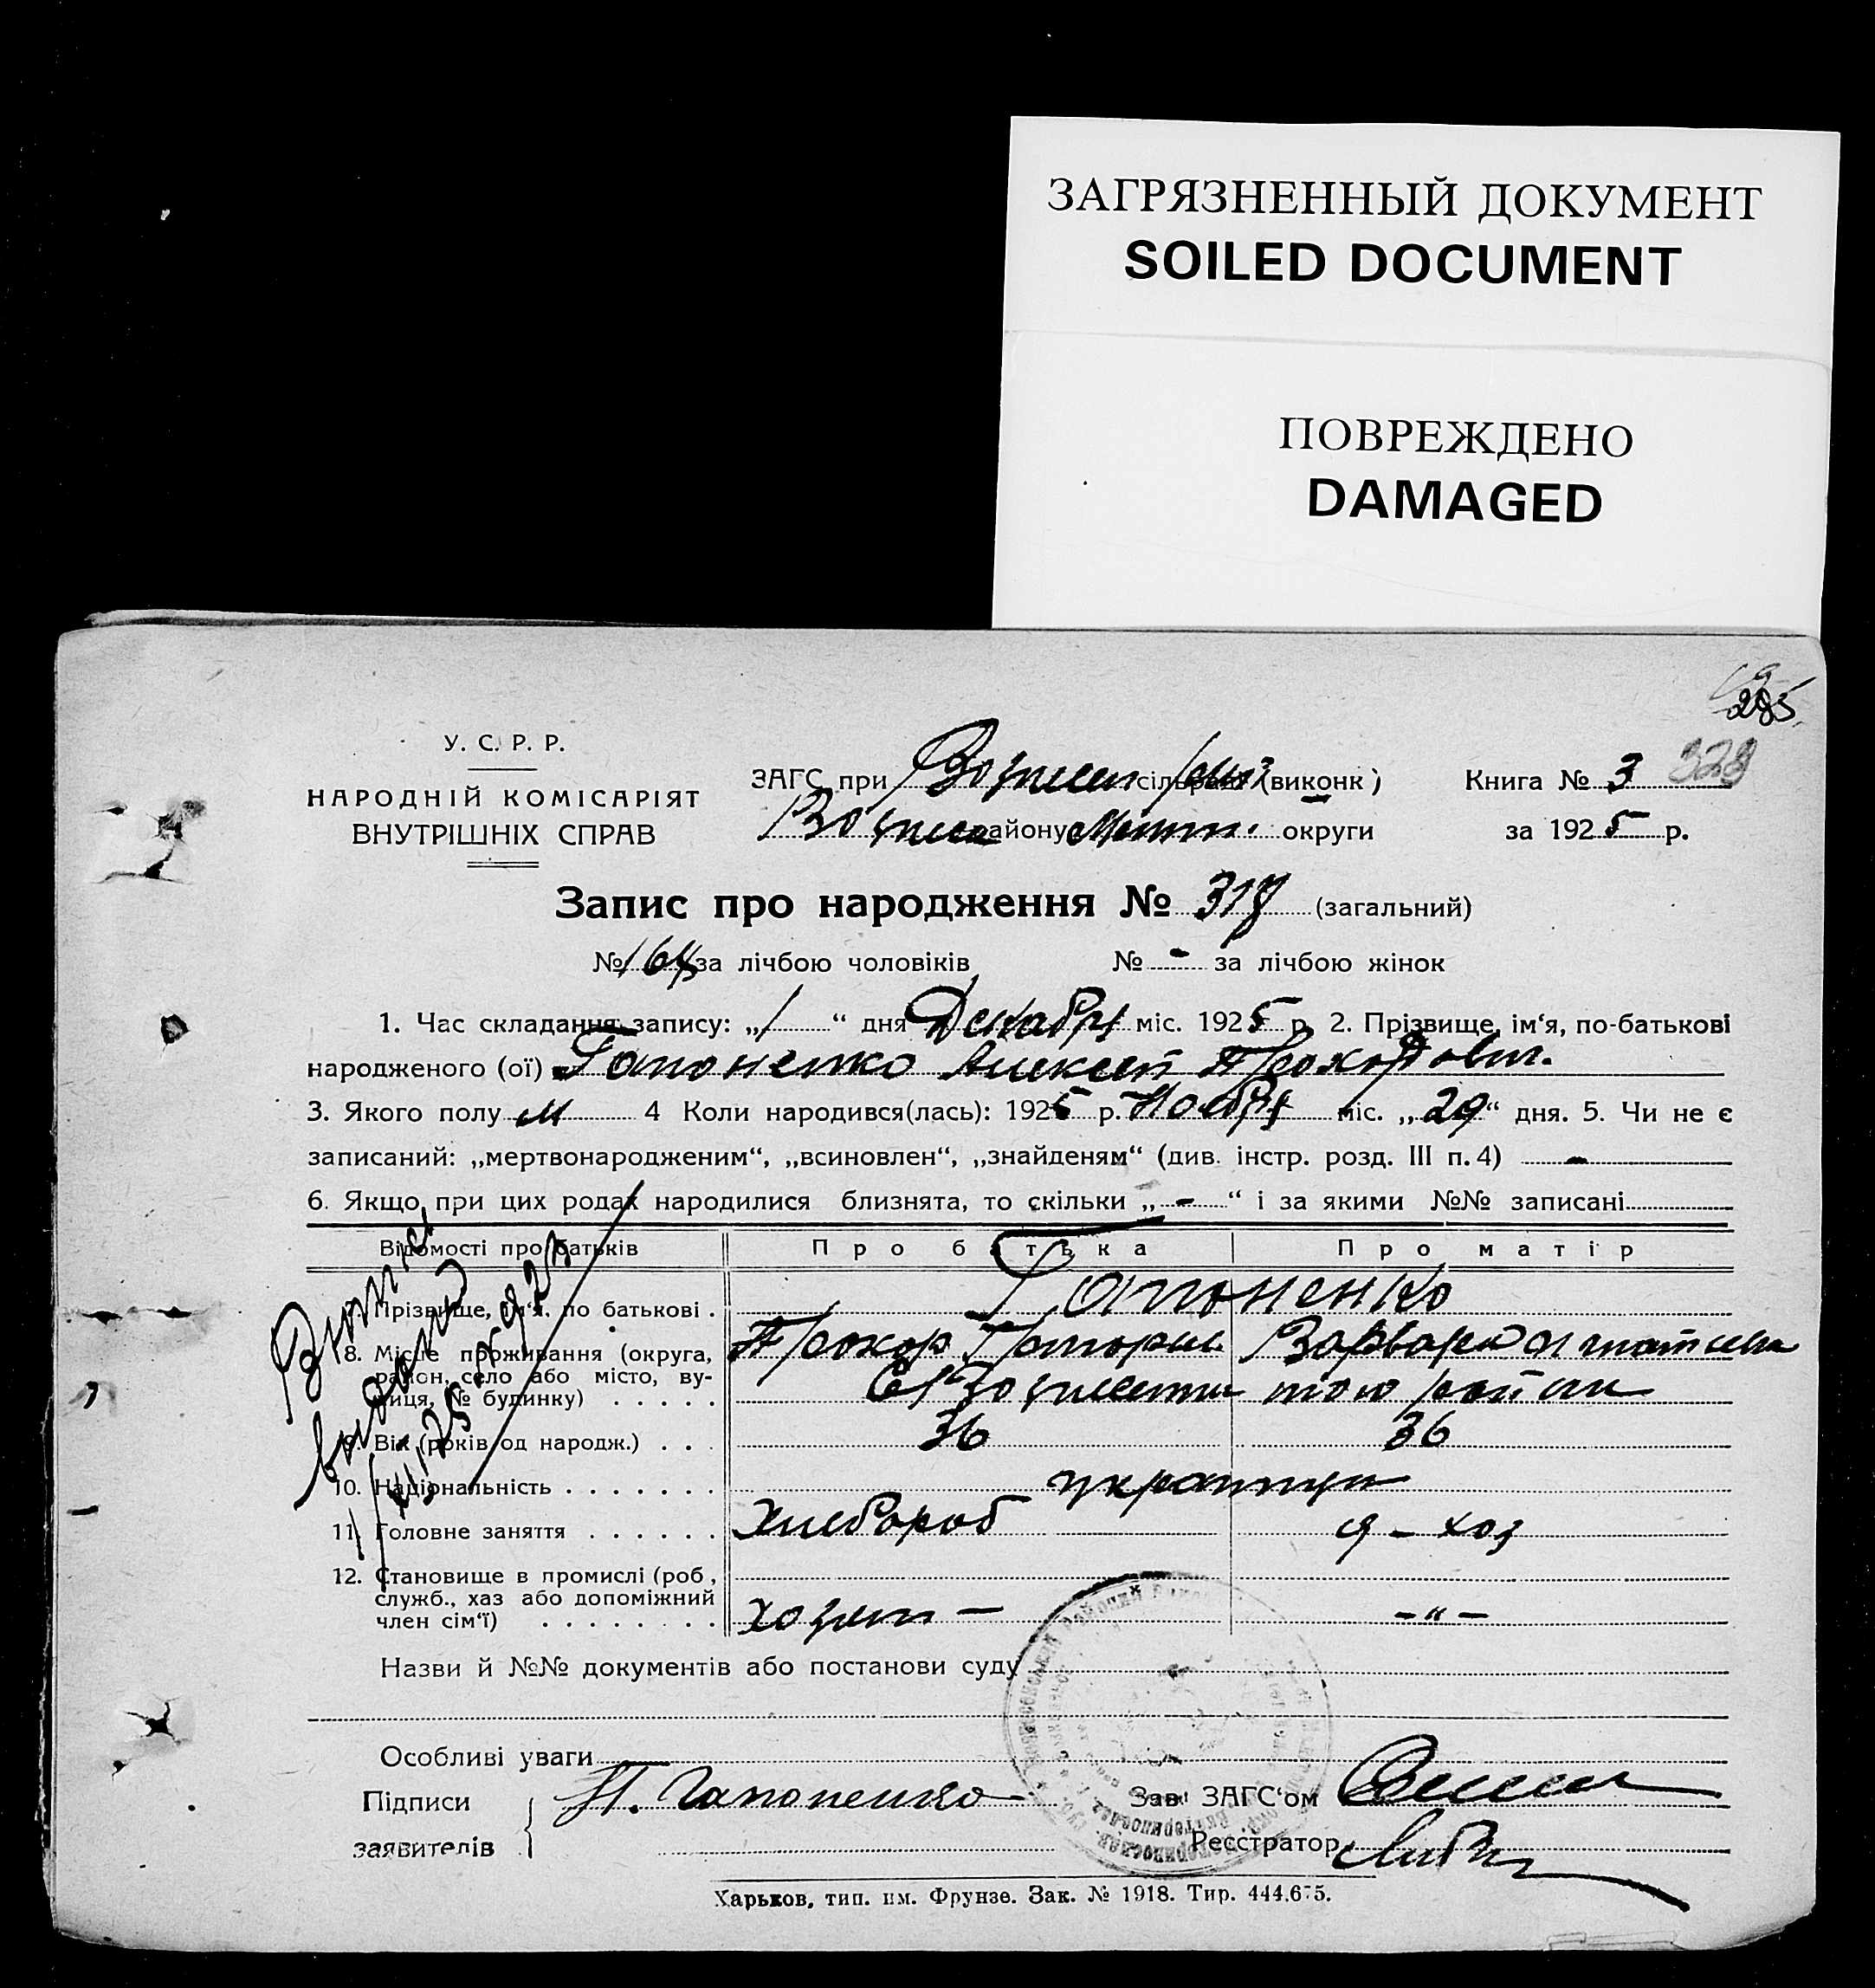 ЗАГРЯЗНЕННЫЙ ДОКУМЕНТ
SOILED DOCUMENT
ПОВРЕЖДЕНО
DAMAGED
285
328
У. С. Р. Р.
НАРОДНІЙ КОМІСАРІЯТ
ВНУТРІШНІХ СПРАВ
ЗАГС при сільраді (виконк) Книга № 3
району округи за 1925 р.
Запис про народження № 317 (загальний)
№ 164 за лічбою чоловіків № - за лічбою жінок
1. Час складання запису: „1“ дня Декабря міс. 1925 р. 2. Прізвище, ім‘я, по-батькові
народженого (ої) Гапоненко Алексей Прохорович.
3. Якого полу м 4 Коли народився(лась): 1925 р. Ноября міс. „29“ дня. 5. Чи не є
записаний: „мертвонародженим“, „всиновлен“, „знайденям“ (див. інстр. розд. III п. 4) -
6. Якщо при цих родах народилися близнята, то скільки „-“ і за якими №№ записані
Відомості про батьків Про батька Про матір
7. Прізвище, ім‘я, по батькові . Гапоненко
Прохор Григорьев Варвара
8. Місце проживання (округа,
район, село або місто, ву-
лиця, № будинку) . . . . .
9. Вік (років од народж.) . . . 36 36
10. Національність . . . . . . . украинцы
11. Головне заняття . . . . . . Хлебороб д-хоз
12. Становище в промислі (роб,
служб., хаз або допоміжний
член сім‘ї) . . . . . . . . хозяин - -"-
Назви й №№ документів або постанови суду
Особливі уваги
Підписи П. Гапоненко Зав. ЗАГС‘ом
заявителів Реєстратор
Харьков, тип. им. Фрунзе. Зак. № 1918. Тир. 444.675.